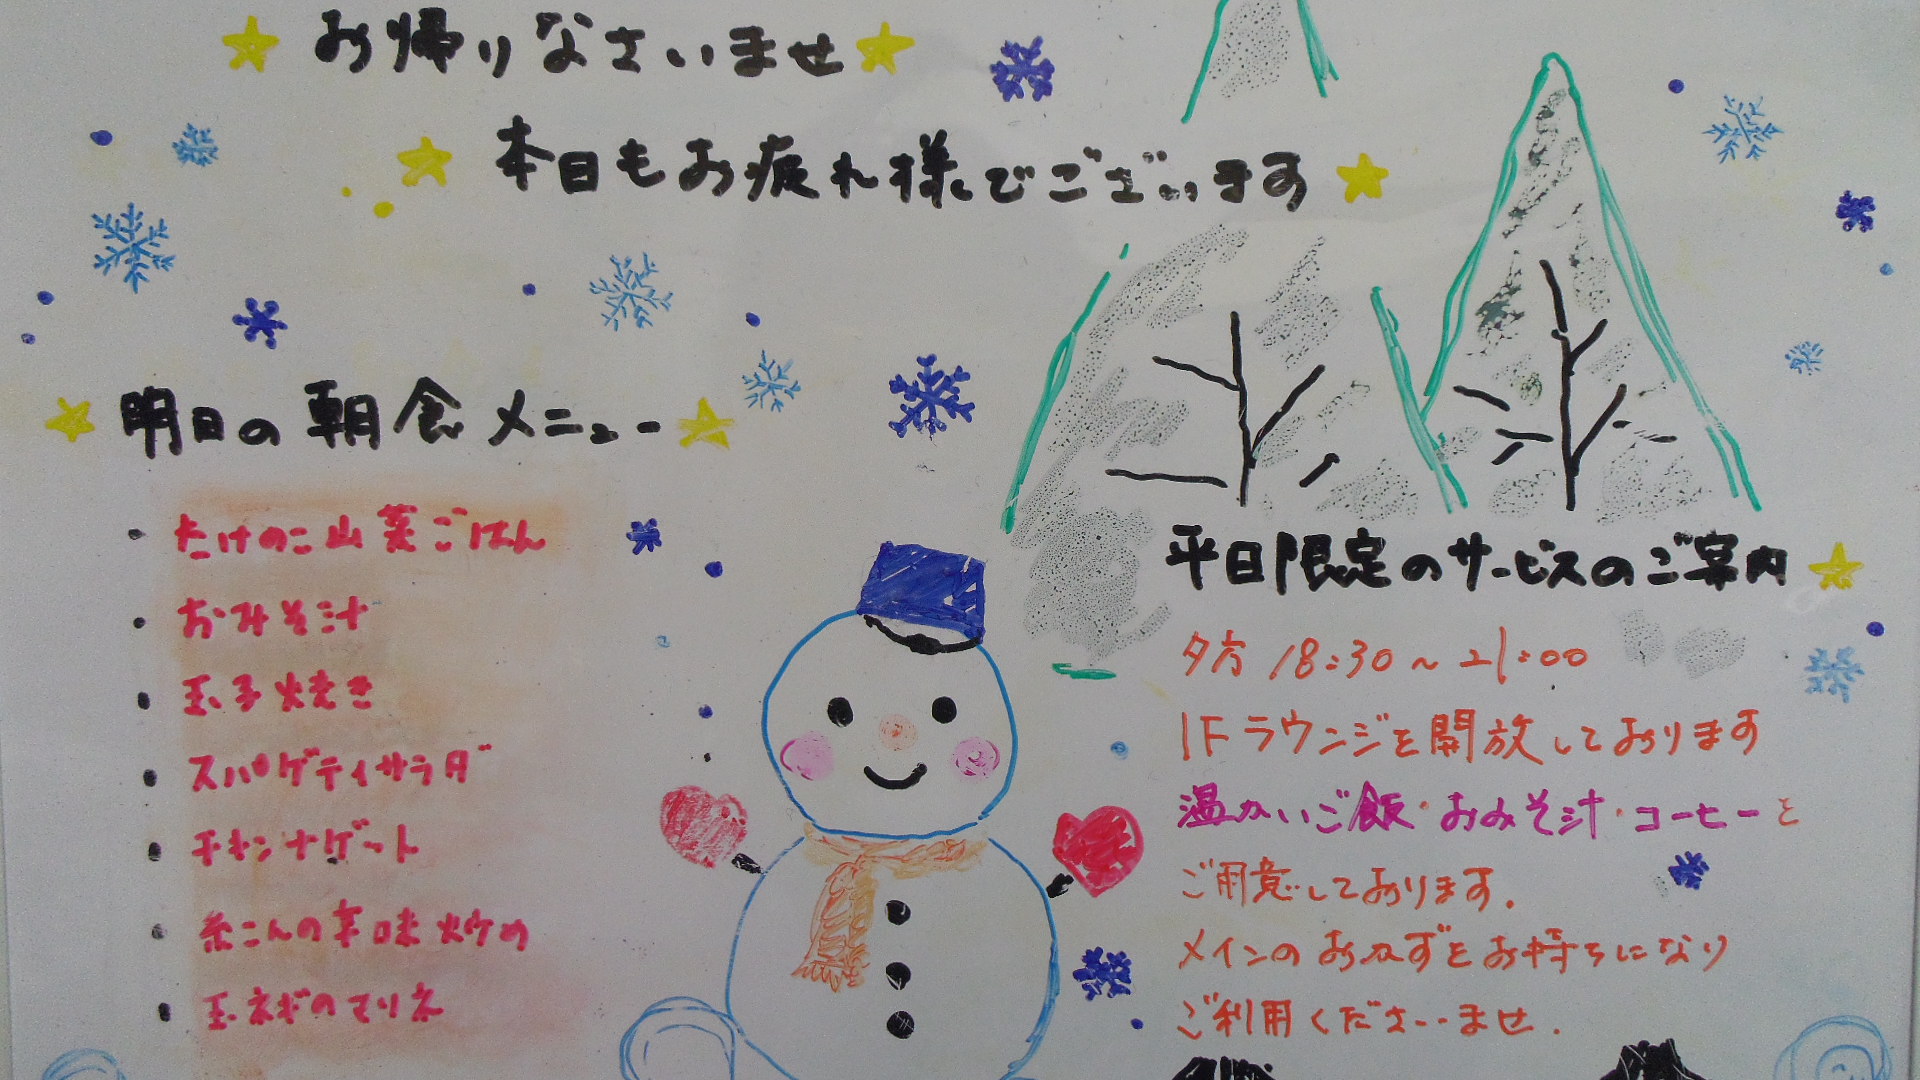 お帰りなさいませ
本日もお疲れ様でございます
明日の朝食メニュー
・たけのこ山菜ごはん
・おみそ汁
・玉子焼き
・スパゲティサラダ
・チキンナゲット
・糸こんの辛味炒め
・玉ネギのマリネ
平日限定のサービスのご案内
夕方 18:30～21:00
1Fラウンジを開放しております
温かいご飯・おみそ汁・コーヒーを
ご用意しております.
メインのおかずをお持ちになり
ご利用くださいませ.